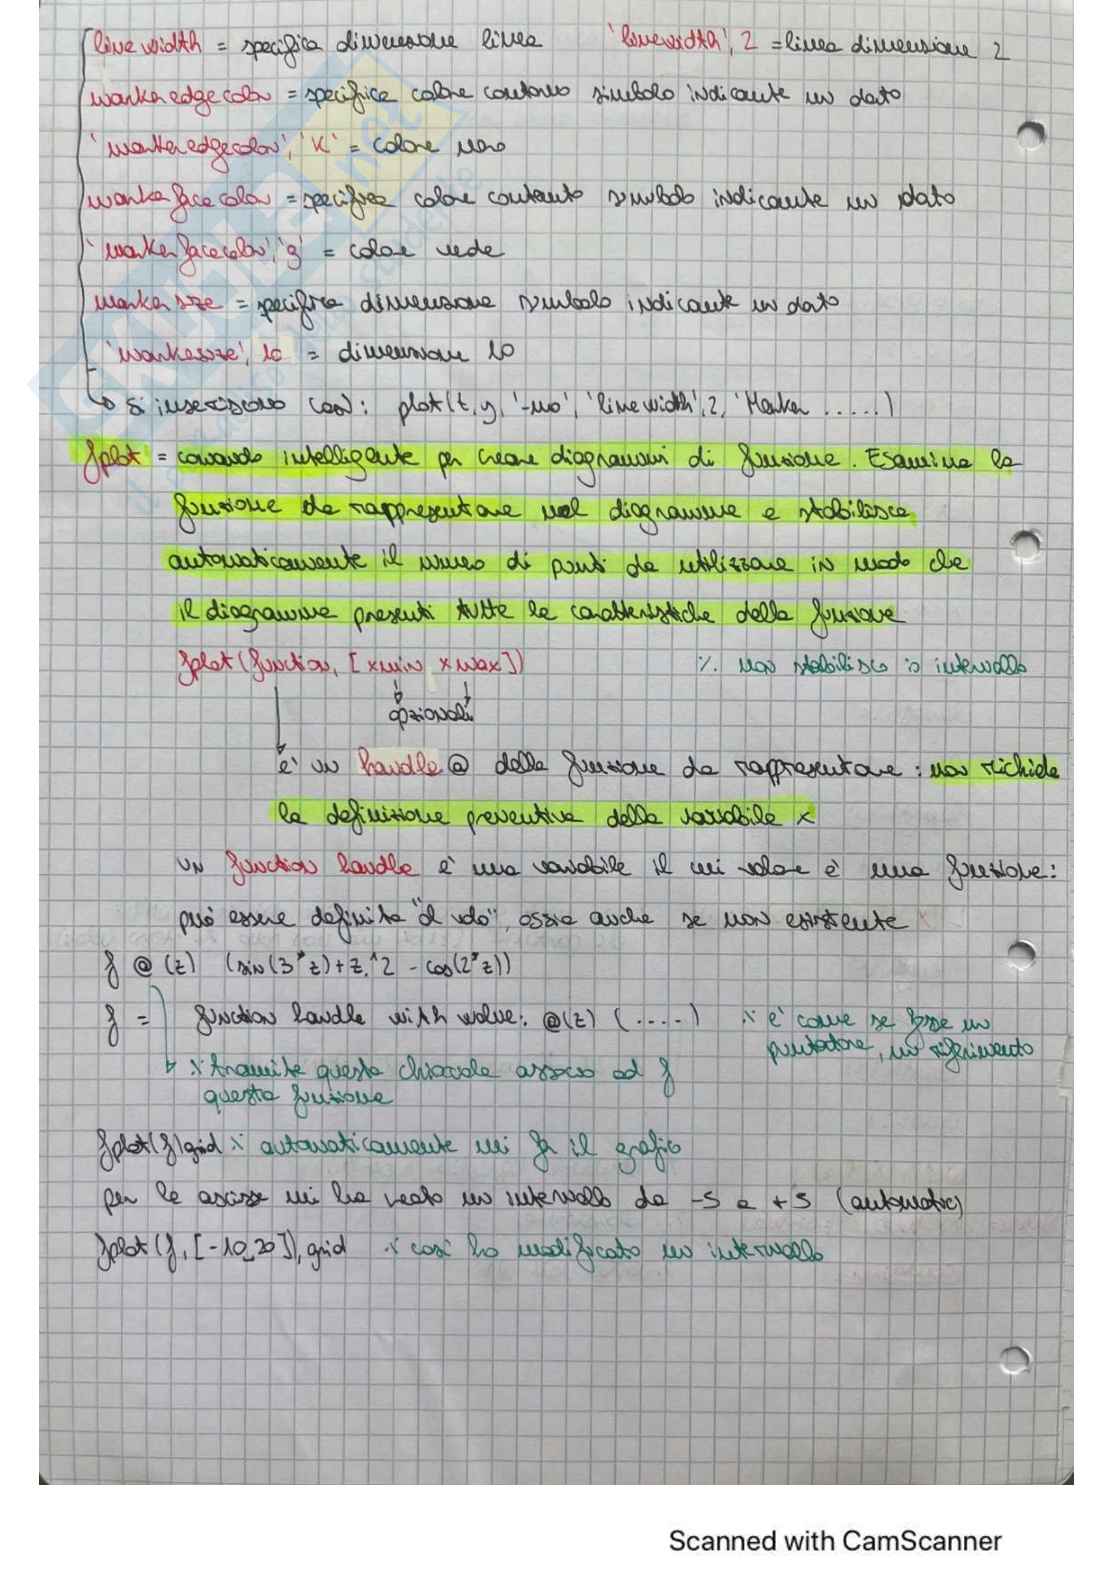 linewidth = specifica dimensione linea 'linewidth', 2 = linea dimensione 2
markeredgecolor = specifica colore contorno simbolo indicante un dato
'markeredgecolor', 'K' = colore nero
markerfacecolor = specifica colore contenuto simbolo indicante un dato
'markerfacecolor', 'g' = colore verde
markersize = specifica dimensione simbolo indicante un dato
'markersize', 10 = dimensione 10
si inseriscono così: plot(t, y, '-mo', 'linewidth', 2, 'Marker .....)
fplot = comando intelligente per creare diagrammi di funzione. Esamina la
funzione da rappresentare nel diagramma e stabilisce
automaticamente il numero di punti da utilizzare in modo che
il diagramma presenti tutte le caratteristiche della funzione
fplot(function, [xmin xmax]) % non stabilisco io intervallo
opzionali
è un handle @ della funzione da rappresentare: non richiede
la definizione preventiva della variabile x
un function handle è una variabile il cui valore è una funzione:
può essere definita "al volo", ossia anche se non esistente
f @(z) (sin(3*z)+z.^2 - cos(2*z))
f = function handle with value: @(z) (....) % è come se fosse un
puntatore, un riferimento
% tramite questa chiocciola associo ad f
questa funzione
fplot(f)grid % automaticamente mi fa il grafico
per le ascisse mi ha creato un intervallo da -5 a +5 (automatic)
fplot(f, [-10 20]), grid % così ho modificato un intervallo
Scanned with CamScanner